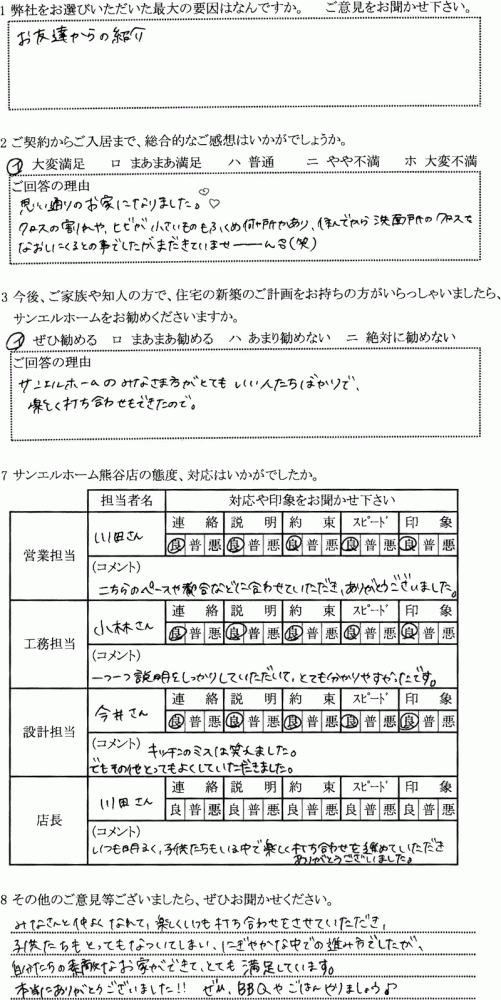 1 弊社をお選びいただいた最大の要因はなんですか。 ご意見をお聞かせ下さい。
お友達からの紹介
2 ご契約からご入居まで、総合的なご感想はいかがでしょうか。
イ 大変満足 ロ まあまあ満足 ハ 普通 ニ やや不満 ホ 大変不満
ご回答の理由
思い通りのお家になりました。♡♡
クロスの割れや、ヒビが小さいものもふくめ何ヶ所かあり、住んでから洗面所のクロスも
なおしにくるとの事でしたがまだきていませーーーんる(笑)
3 今後、ご家族や知人の方で、住宅の新築のご計画をお持ちの方がいらっしゃいましたら、
サンエルホームをお勧めくださいますか。
イ ぜひ勧める ロ まあまあ勧める ハ あまり勧めない ニ 絶対に勧めない
ご回答の理由
サンエルホームのみなさま方がとてもいい人たちばかりで、
楽しく打ち合わせもできたので。
7 サンエルホーム熊谷店の態度、対応はいかがでしたか。
担当者名 対応や印象をお聞かせ下さい
営業担当 川田さん 連絡 説明 約束 スピード 印象
良 普 悪 良 普 悪 良 普 悪 良 普 悪 良 普 悪
(コメント)
こちらのペースや都合などに合わせていただき、ありがとうございました。
工務担当 小林さん 連絡 説明 約束 スピード 印象
良 普 悪 良 普 悪 良 普 悪 良 普 悪 良 普 悪
(コメント)
一つ一つ説明をしっかりしていただいて、とても分かりやすかったです。
設計担当 今井さん 連絡 説明 約束 スピード 印象
良 普 悪 良 普 悪 良 普 悪 良 普 悪 良 普 悪
(コメント) キッチンのミスは笑えました。
でもその他とってもよくしていただきました。
店長 川田さん 連絡 説明 約束 スピード 印象
良 普 悪 良 普 悪 良 普 悪 良 普 悪 良 普 悪
(コメント)
いつも明るく、子供たちもいる中で楽しく打ち合わせを進めていただき
ありがとうございました。
8 その他のご意見等ございましたら、ぜひお聞かせください。
みなさんと仲よくなれて、楽しくいつも打ち合わせをさせていただき、
子供たちもとってもなついてしまい、にぎやかな中での進み方でしたが、
自分たちの素敵なお家ができて、とても満足しています。
本当にありがとうございました!! ぜひ、BBQやごはんやりましょう♪